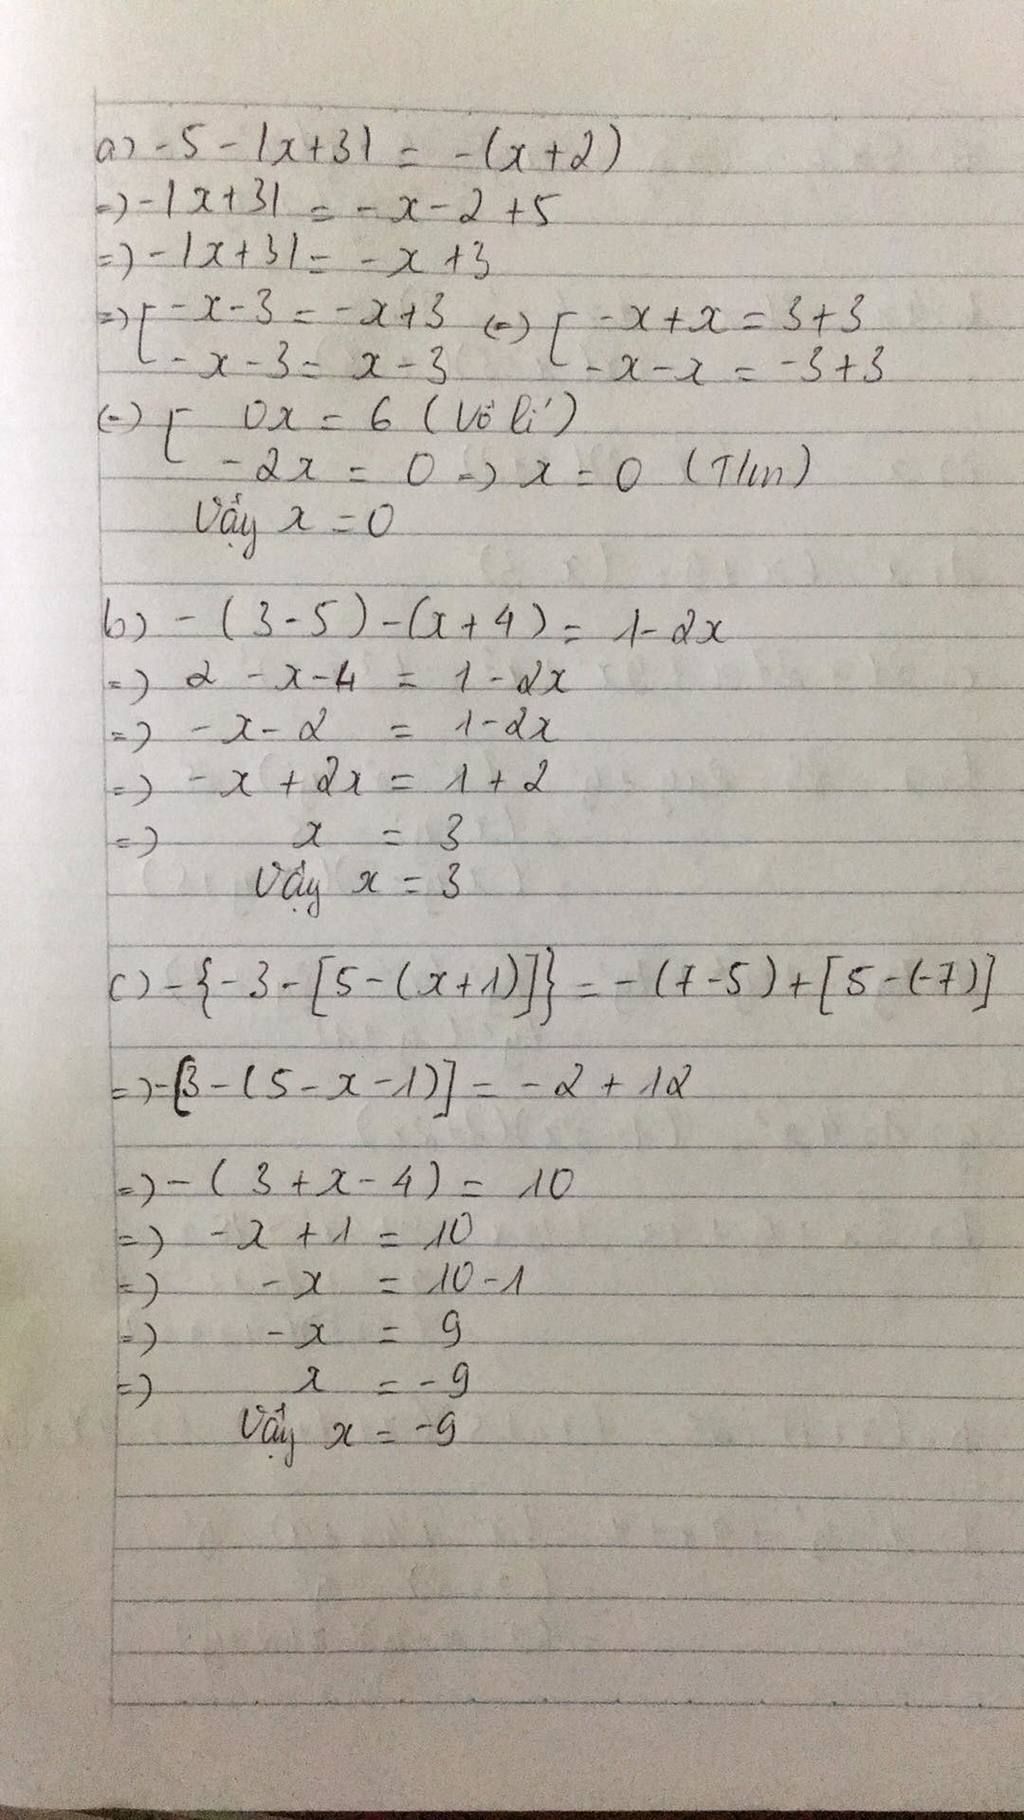 a) -5 - |x+3| = -(x+2)
=) -|x+3| = -x-2+5
=) -|x+3| = -x+3
=) [ -x-3 = -x+3 (=) [ -x+x = 3+3
-x-3 = x-3 -x-x = -3+3
(=) [ 0x = 6 (Vô lí)
-2x = 0 =) x = 0 (T/m)
Vậy x = 0
b) -(3-5)-(x+4) = 1-2x
=) 2 -x-4 = 1-2x
=) -x-2 = 1-2x
=) -x+2x = 1+2
=) x = 3
Vậy x = 3
c) -{-3-[5-(x+1)]} = -(7-5)+[5-(-7)]
=) -[3-(5-x-1)] = -2+12
=) -(3+x-4) = 10
=) -x+1 = 10
=) -x = 10-1
=) -x = 9
=) x = -9
Vậy x = -9